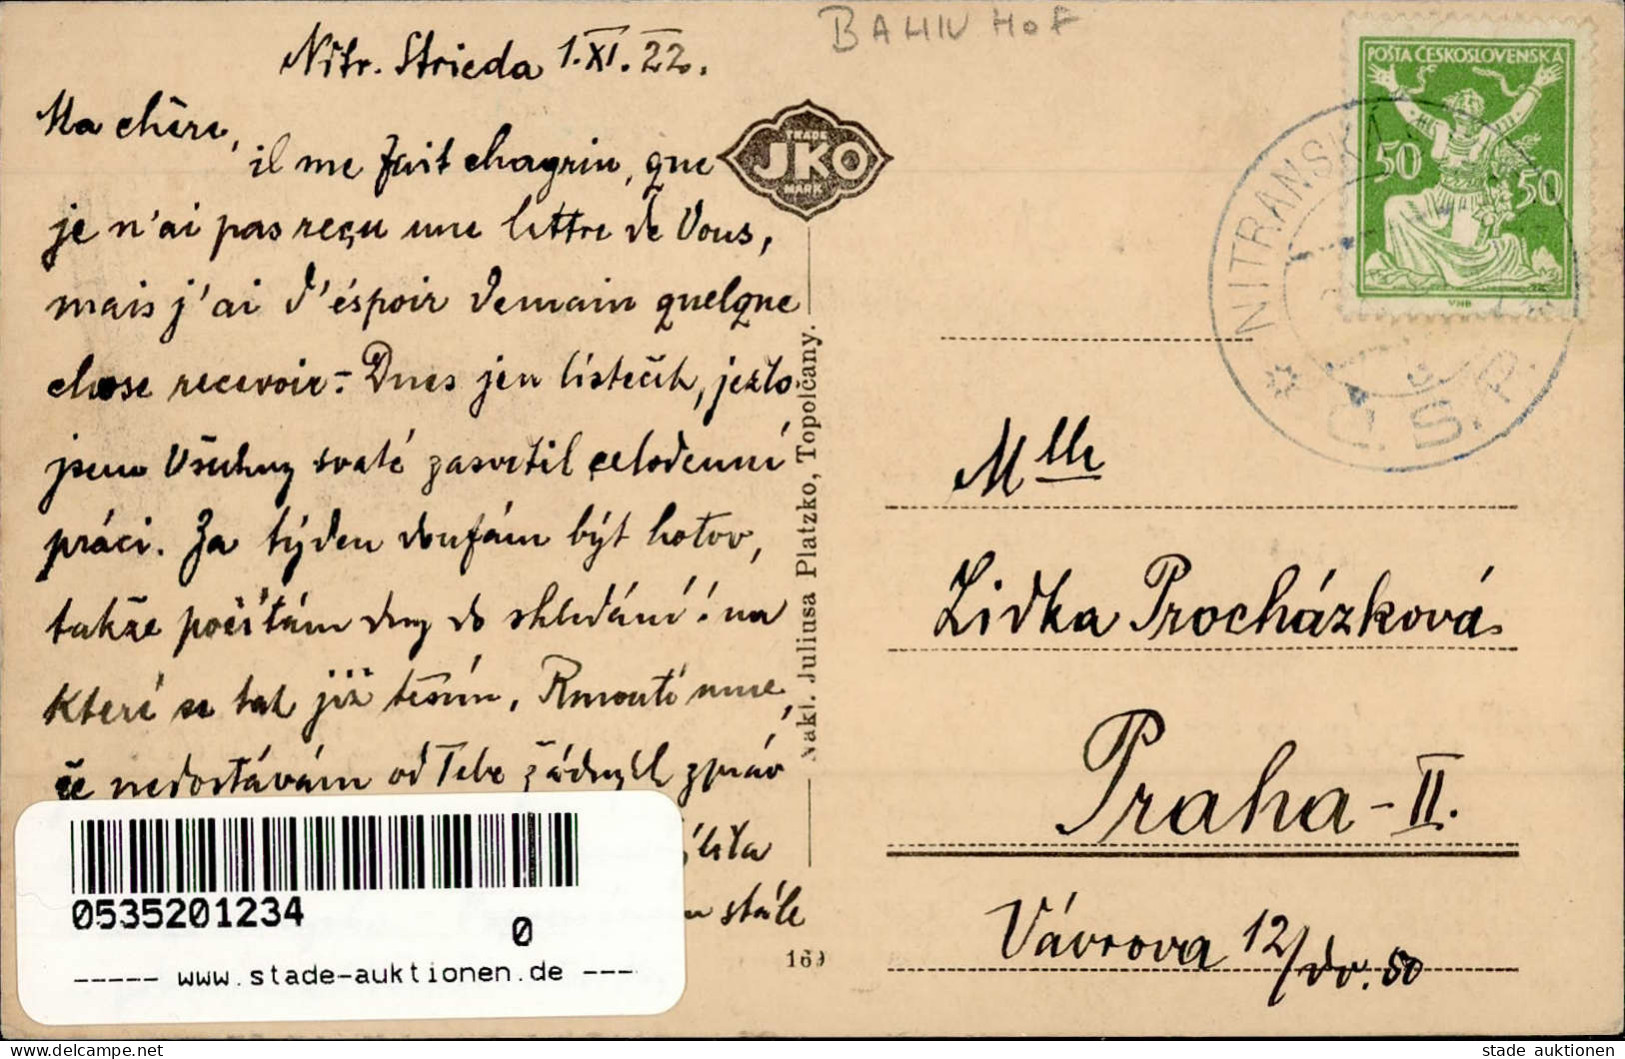 BAHN HOF
Nitr. Strieda 1.XI.22.
Ma chère,
il me fait chagrin, que
je n'ai pas reçu une lettre de Vous,
mais j'ai d'éspoir demain quelque
chose recevoir. - Dnes jen lísteček, ježto
jsem Všechny svaté zasvětil celodenní
práci. Za týden doufám být hotov,
takže počítám dny do shledání! na
které se tak již těším. Rmoutí mne,
že nedostávám od Tebe žádných zpráv
stále
TRADE
JKO
MARK
Nakl. Juliusa Platzko, Topolčany.
169
POŠTA ČESKOSLOVENSKÁ
50
50
VHB
NITRANSKÁ
Č.S.P.
Mlle
Lidka Procházková
Praha-II.
Vávrova 12/dv. 50
0535201234
0
----- www.stade-auktionen.de ---
stade auktionen
www.delcampe.net